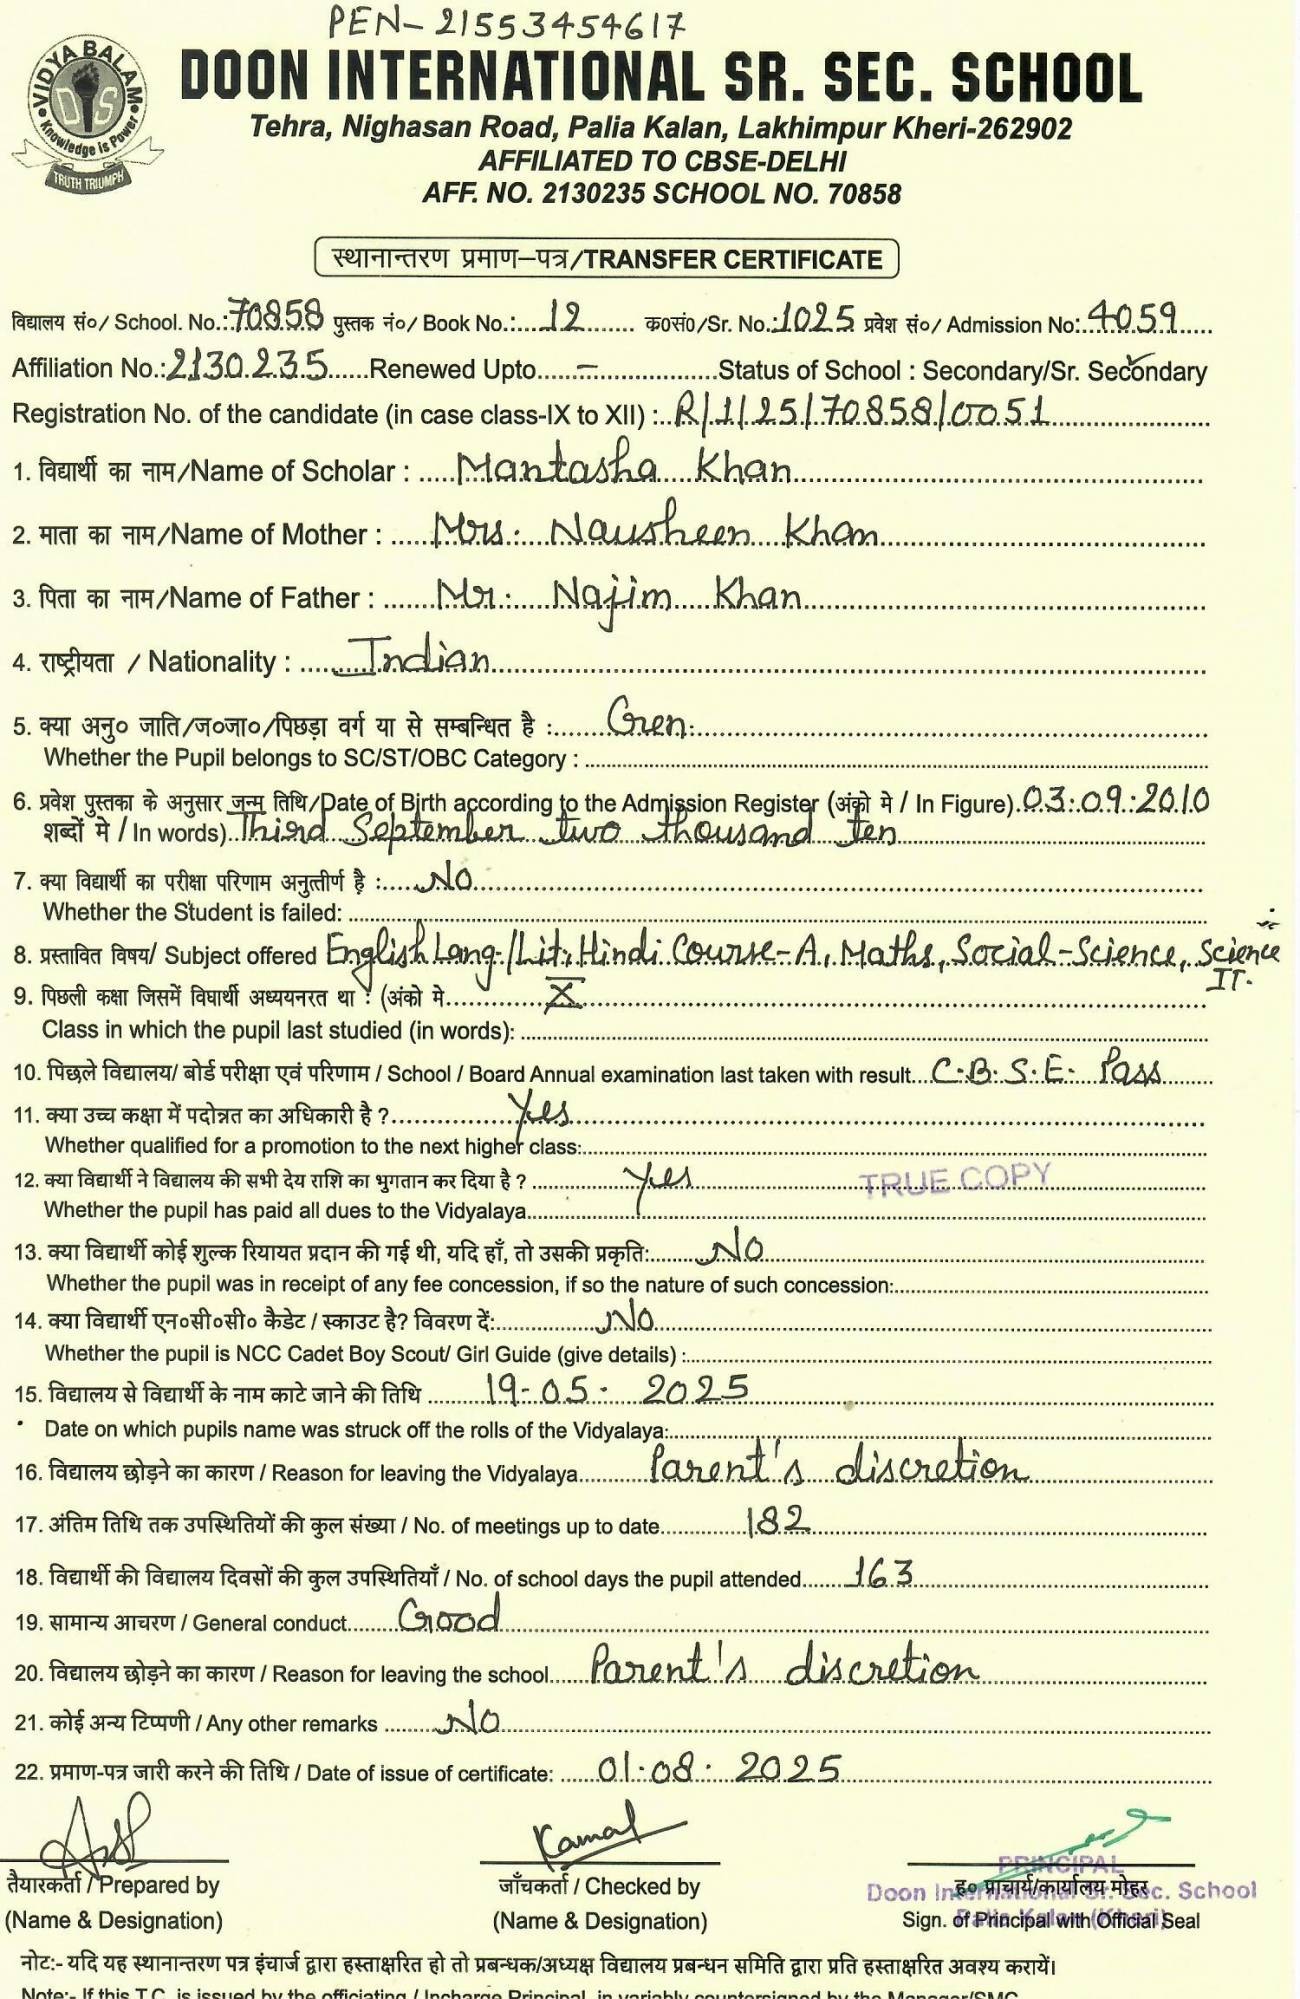 PEN-21553454617
VIDYA BALAM
DIS
Knowledge is Power
TRUTH TRIUMPH
DOON INTERNATIONAL SR. SEC. SCHOOL
Tehra, Nighasan Road, Palia Kalan, Lakhimpur Kheri-262902
AFFILIATED TO CBSE-DELHI
AFF. NO. 2130235 SCHOOL NO. 70858
स्थानान्तरण प्रमाण–पत्र/TRANSFER CERTIFICATE
विद्यालय सं०/ School. No.: 70858 पुस्तक नं०/ Book No.: 12 क०सं०/Sr. No.: 1025 प्रवेश सं०/ Admission No: 4059
Affiliation No.: 2130235 Renewed Upto - Status of School : Secondary/Sr. Secondary ✓
Registration No. of the candidate (in case class-IX to XII) : R/1/25/70858/0051
1. विद्यार्थी का नाम/Name of Scholar : Mantasha Khan
2. माता का नाम/Name of Mother : Mrs. Nausheen Khan
3. पिता का नाम/Name of Father : Mr. Najim Khan
4. राष्ट्रीयता / Nationality : Indian
5. क्या अनु० जाति/ज०जा०/पिछड़ा वर्ग या से सम्बन्धित है : Gen.
Whether the Pupil belongs to SC/ST/OBC Category :
6. प्रवेश पुस्तका के अनुसार जन्म तिथि/Date of Birth according to the Admission Register (अंको मे / In Figure). 03.09.2010
शब्दों मे / In words) Third September two thousand ten
7. क्या विद्यार्थी का परीक्षा परिणाम अनुत्तीर्ण है : No
Whether the Student is failed:
8. प्रस्तावित विषय/ Subject offered English Lang./Lit., Hindi Course-A, Maths, Social-Science, Science
IT.
9. पिछली कक्षा जिसमें विघार्थी अध्ययनरत था : (अंको मे X
Class in which the pupil last studied (in words):
10. पिछले विद्यालय/ बोर्ड परीक्षा एवं परिणाम / School / Board Annual examination last taken with result C.B.S.E. Pass
11. क्या उच्च कक्षा में पदोन्नत का अधिकारी है ? Yes
Whether qualified for a promotion to the next higher class:
12. क्या विद्यार्थी ने विद्यालय की सभी देय राशि का भुगतान कर दिया है ? Yes TRUE COPY
Whether the pupil has paid all dues to the Vidyalaya
13. क्या विद्यार्थी कोई शुल्क रियायत प्रदान की गई थी, यदि हाँ, तो उसकी प्रकृति: No
Whether the pupil was in receipt of any fee concession, if so the nature of such concession:
14. क्या विद्यार्थी एन०सी०सी० कैडेट / स्काउट है? विवरण दें: No
Whether the pupil is NCC Cadet Boy Scout/ Girl Guide (give details) :
15. विद्यालय से विद्यार्थी के नाम काटे जाने की तिथि 19-05-2025
Date on which pupils name was struck off the rolls of the Vidyalaya:
16. विद्यालय छोड़ने का कारण / Reason for leaving the Vidyalaya Parent's discretion
17. अंतिम तिथि तक उपस्थितियों की कुल संख्या / No. of meetings up to date 182
18. विद्यार्थी की विद्यालय दिवसों की कुल उपस्थितियाँ / No. of school days the pupil attended 163
19. सामान्य आचरण / General conduct Good
20. विद्यालय छोड़ने का कारण / Reason for leaving the school Parent's discretion
21. कोई अन्य टिप्पणी / Any other remarks No
22. प्रमाण-पत्र जारी करने की तिथि / Date of issue of certificate: 01.08.2025
Kamal
PRINCIPAL
तैयारकर्ता / Prepared by जाँचकर्ता / Checked by ह० प्राचार्य/कार्यालय मोहर
Doon International Sr. Sec. School
(Name & Designation) (Name & Designation) Sign. of Principal with Official Seal
Palia Kalan (Kheri)
नोट:- यदि यह स्थानान्तरण पत्र इंचार्ज द्वारा हस्ताक्षरित हो तो प्रबन्धक/अध्यक्ष विद्यालय प्रबन्धन समिति द्वारा प्रति हस्ताक्षरित अवश्य करायें।
Note:- If this T.C. is issued by the officiating / Incharge Principal, in variably countersigned by the Manager/SMC